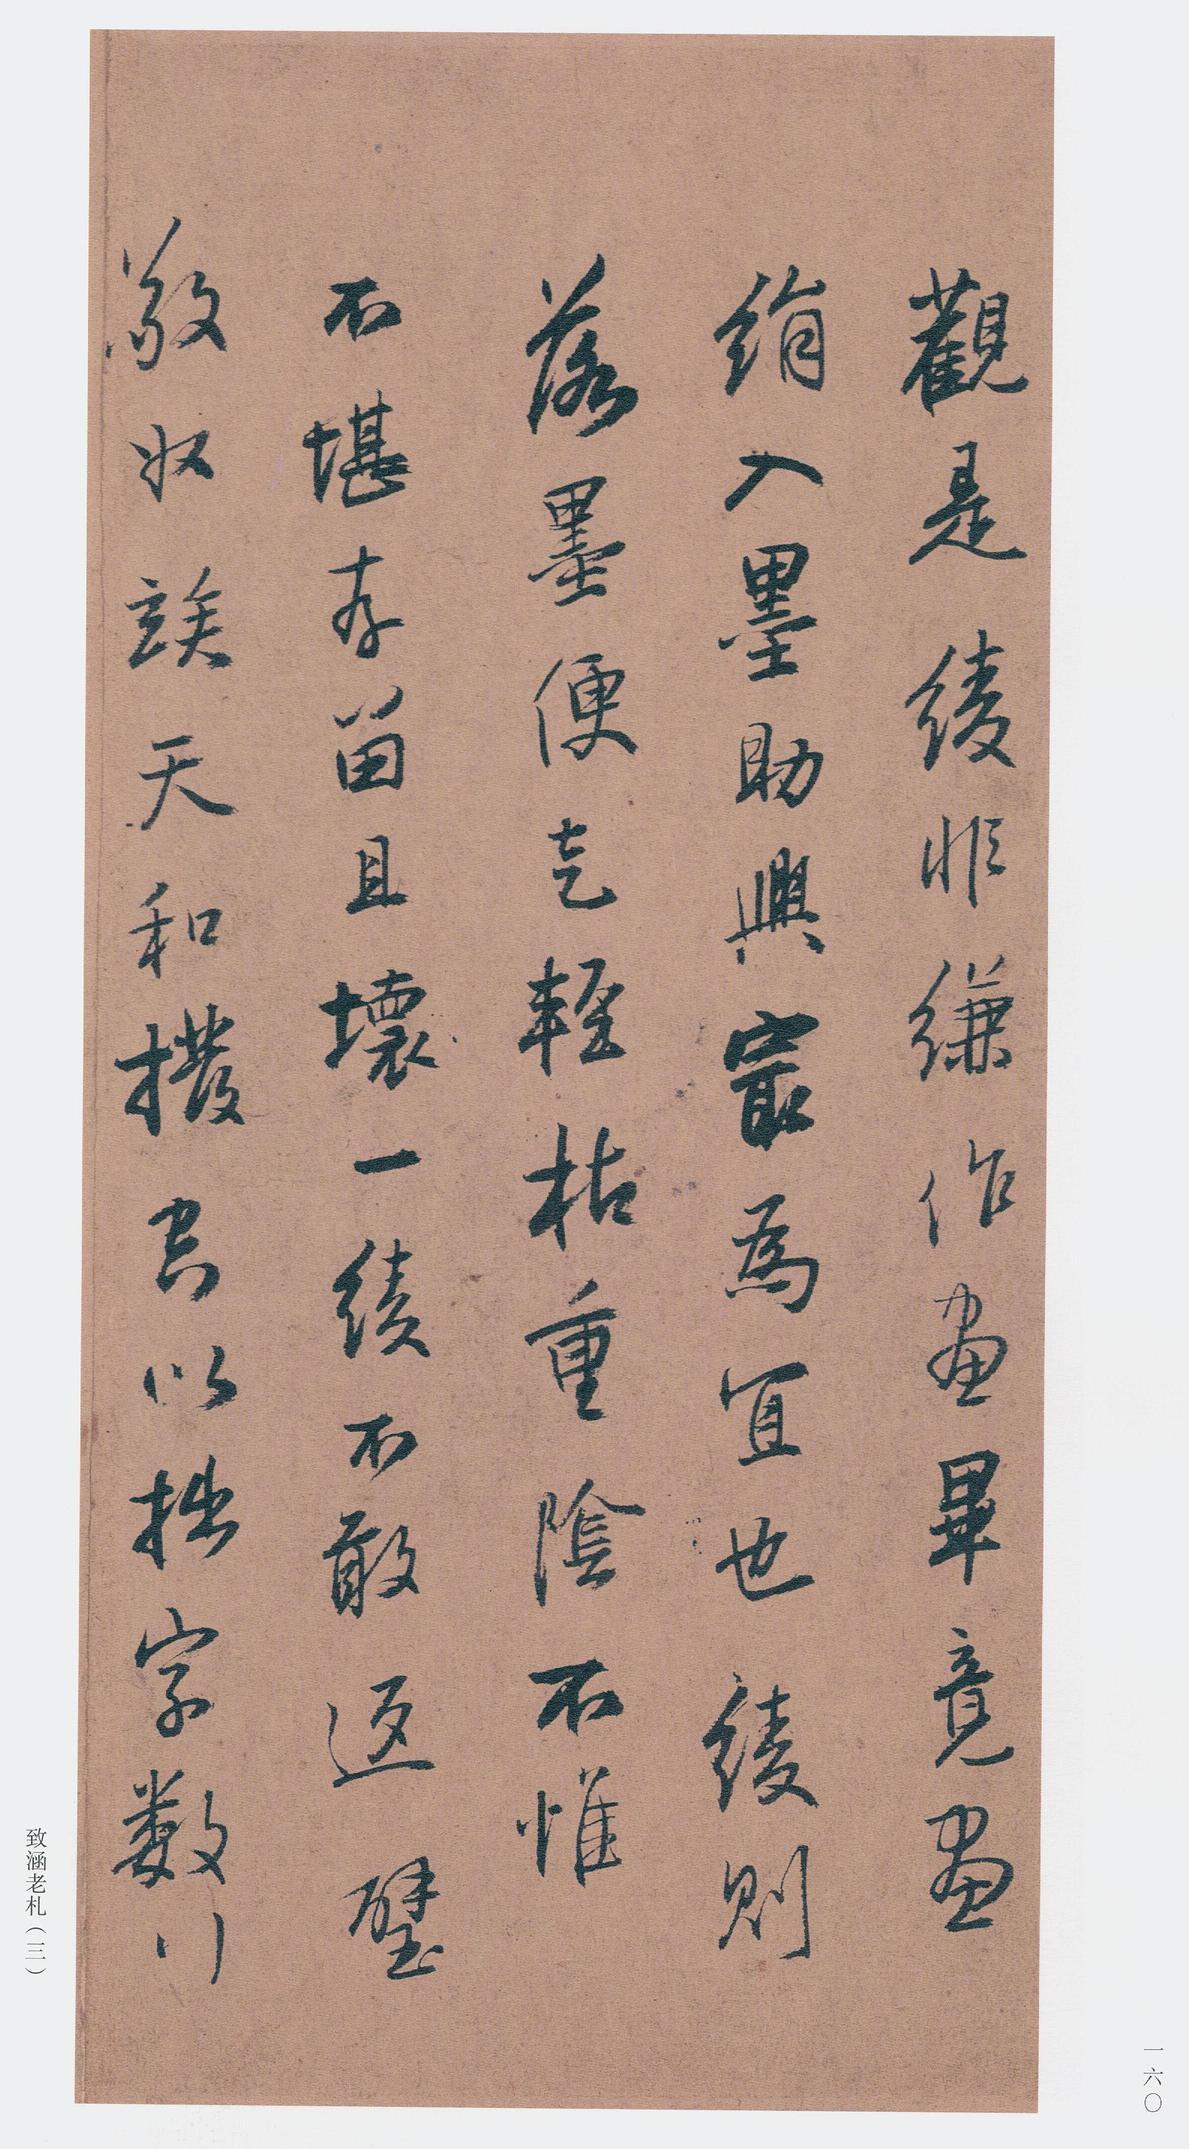 觀是綾非縑作畫畢竟畫
絹入墨助興最為宜也綾則
落墨便輕枯重陰不惟
不堪存留且壞一綾不敢返璧
敬收竢天和撥冗以拙字數行
致涵老札（三）
一六〇